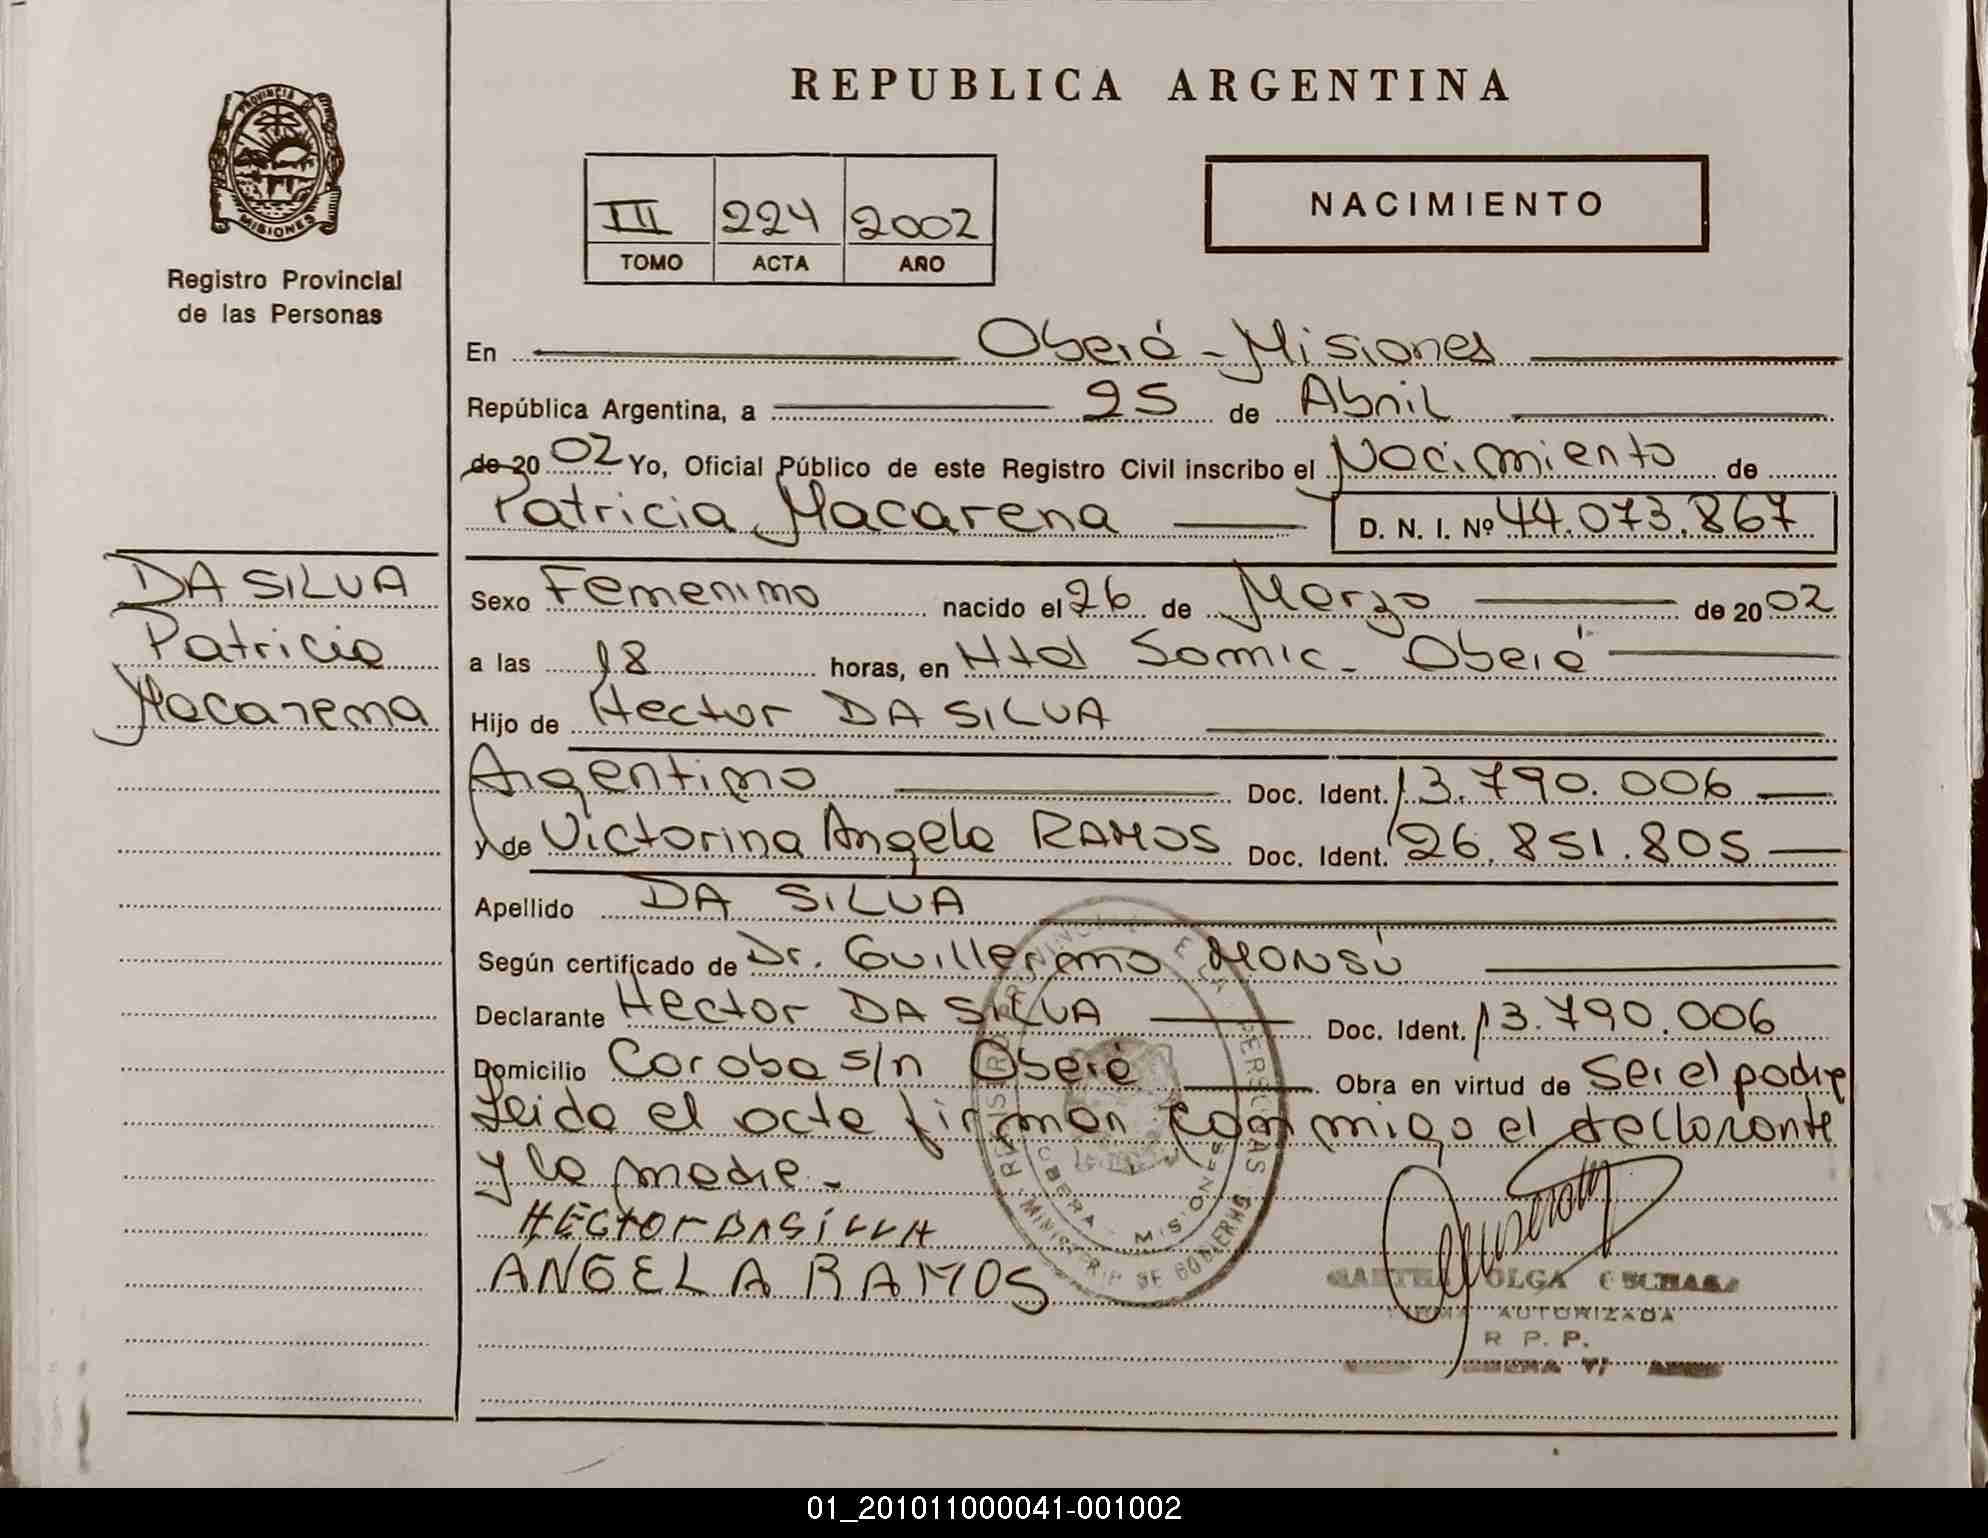 REPUBLICA ARGENTINA
PROVINCIA DE
MISIONES
Registro Provincial
de las Personas
III 224 2002
TOMO ACTA AÑO
NACIMIENTO
En Oberá - Misiones
República Argentina, a 25 de Abril
de 20 02 Yo, Oficial Público de este Registro Civil inscribo el Nacimiento de
Patricia Macarena D. N. I. Nº 44.073.867
DA SILVA
Patricia
Macarena
Sexo Femenino nacido el 26 de Marzo de 20 02
a las 18 horas, en Htal Samic - Oberá
Hijo de Hector DA SILVA
Argentino Doc. Ident. 13.790.006
y de Victorina Angela RAMOS Doc. Ident. 26.851.805
Apellido DA SILVA
Según certificado de Dr. Guillermo MONSÚ
Declarante Hector DA SILVA Doc. Ident. 13.790.006
Domicilio Coroba s/n Oberá Obra en virtud de Ser el padre
Leida el acta firman conmigo el declarante
y la madre.-
HECTOR DASILVA
ANGELA RAMOS
OBERA - MISIONES
MINISTERIO DE GOBIERNO
OLGA
AUTORIZADA
R. P. P.
01_201011000041-001002